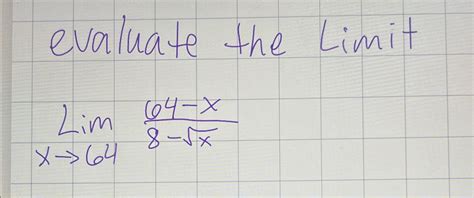 evaluate the Limit
Lim 64-x
x→64 8-√x